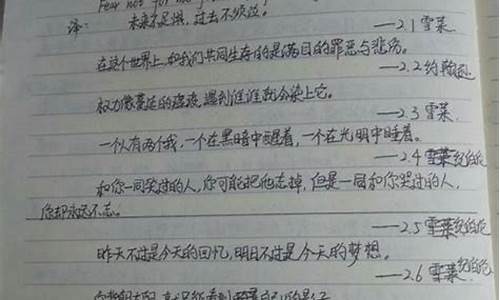 Fear not for
译： 未来不足惧，过去不须泣。
——2.1 雪莱
在这个世界上，和我们共同生存的是满目的罪恶与悲伤。
——2.2
权力像蔓延的瘟疫，遇到谁谁就会染上它。
——2.3 雪莱
一个人有两个我，一个在黑暗中醒着，一个在光明中睡着。
——2.4 纪伯伦
和你一同笑过的人，你可能把他忘掉，但是一同和你哭过的人，
你却永远不忘。
——2.5 纪伯伦
昨天不过是今天的回忆，明日不过是今天的梦想。
——2.6 纪伯伦